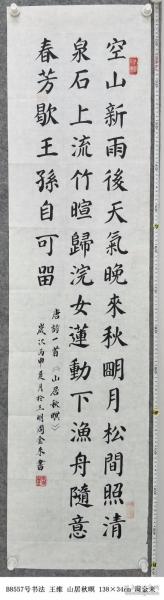 空山新雨後天氣晚來秋明月松間照清
泉石上流竹喧歸浣女蓮動下漁舟隨意
春芳歇王孫自可留
唐詩一首《山居秋暝》
歲次丙申夏月於三明周金來書
B8557号书法 王维 山居秋暝 138×34cm 周金来